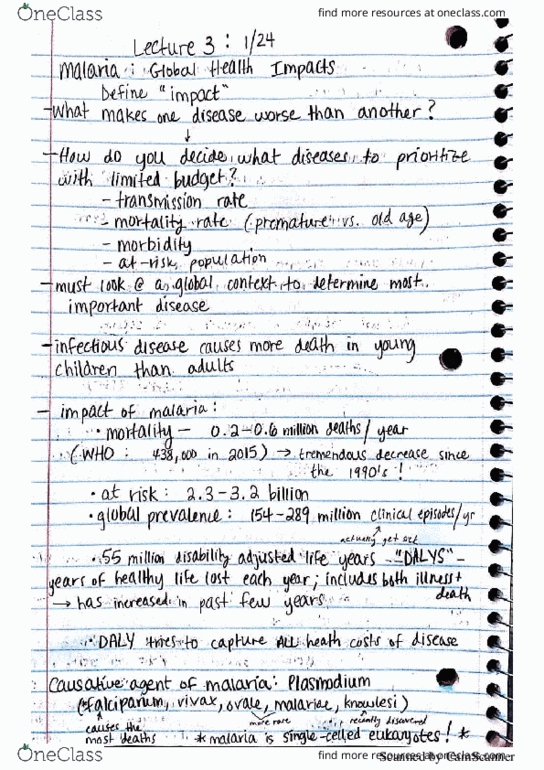 OneClass
find more resources at oneclass.com
Lecture 3 : 1/24
Malaria : Global Health Impacts
Define "impact"
-What makes one disease worse than another?
↓
-How do you decide what diseases to prioritize
with limited budget?
- transmission rate
- mortality rate (premature vs. old age)
- morbidity
- at-risk population
-must look @ a global context to determine most
important disease
-infectious disease causes more death in young
children than adults
- impact of malaria:
• mortality - 0.2-0.6 million deaths/year
(WHO: 438,000 in 2015) → tremendous decrease since
the 1990's!
• at risk: 2.3-3.2 billion
• global prevalence: 154-289 million clinical episodes/yr
actually get sick
• 55 million disability adjusted life years -"DALYS"-
years of healthy life lost each year; includes both illness +
death
→ has increased in past few years
• DALY tries to capture ALL heath costs of disease
Causative agent of malaria: Plasmodium
(falciparum, vivax, ovale, malariae, knowlesi)
causes the
most deaths
more rare
recently discovered
* malaria is single-celled eukaryotes! *
OneClass
find more resources at oneclass.com
Scanned by CamScanner